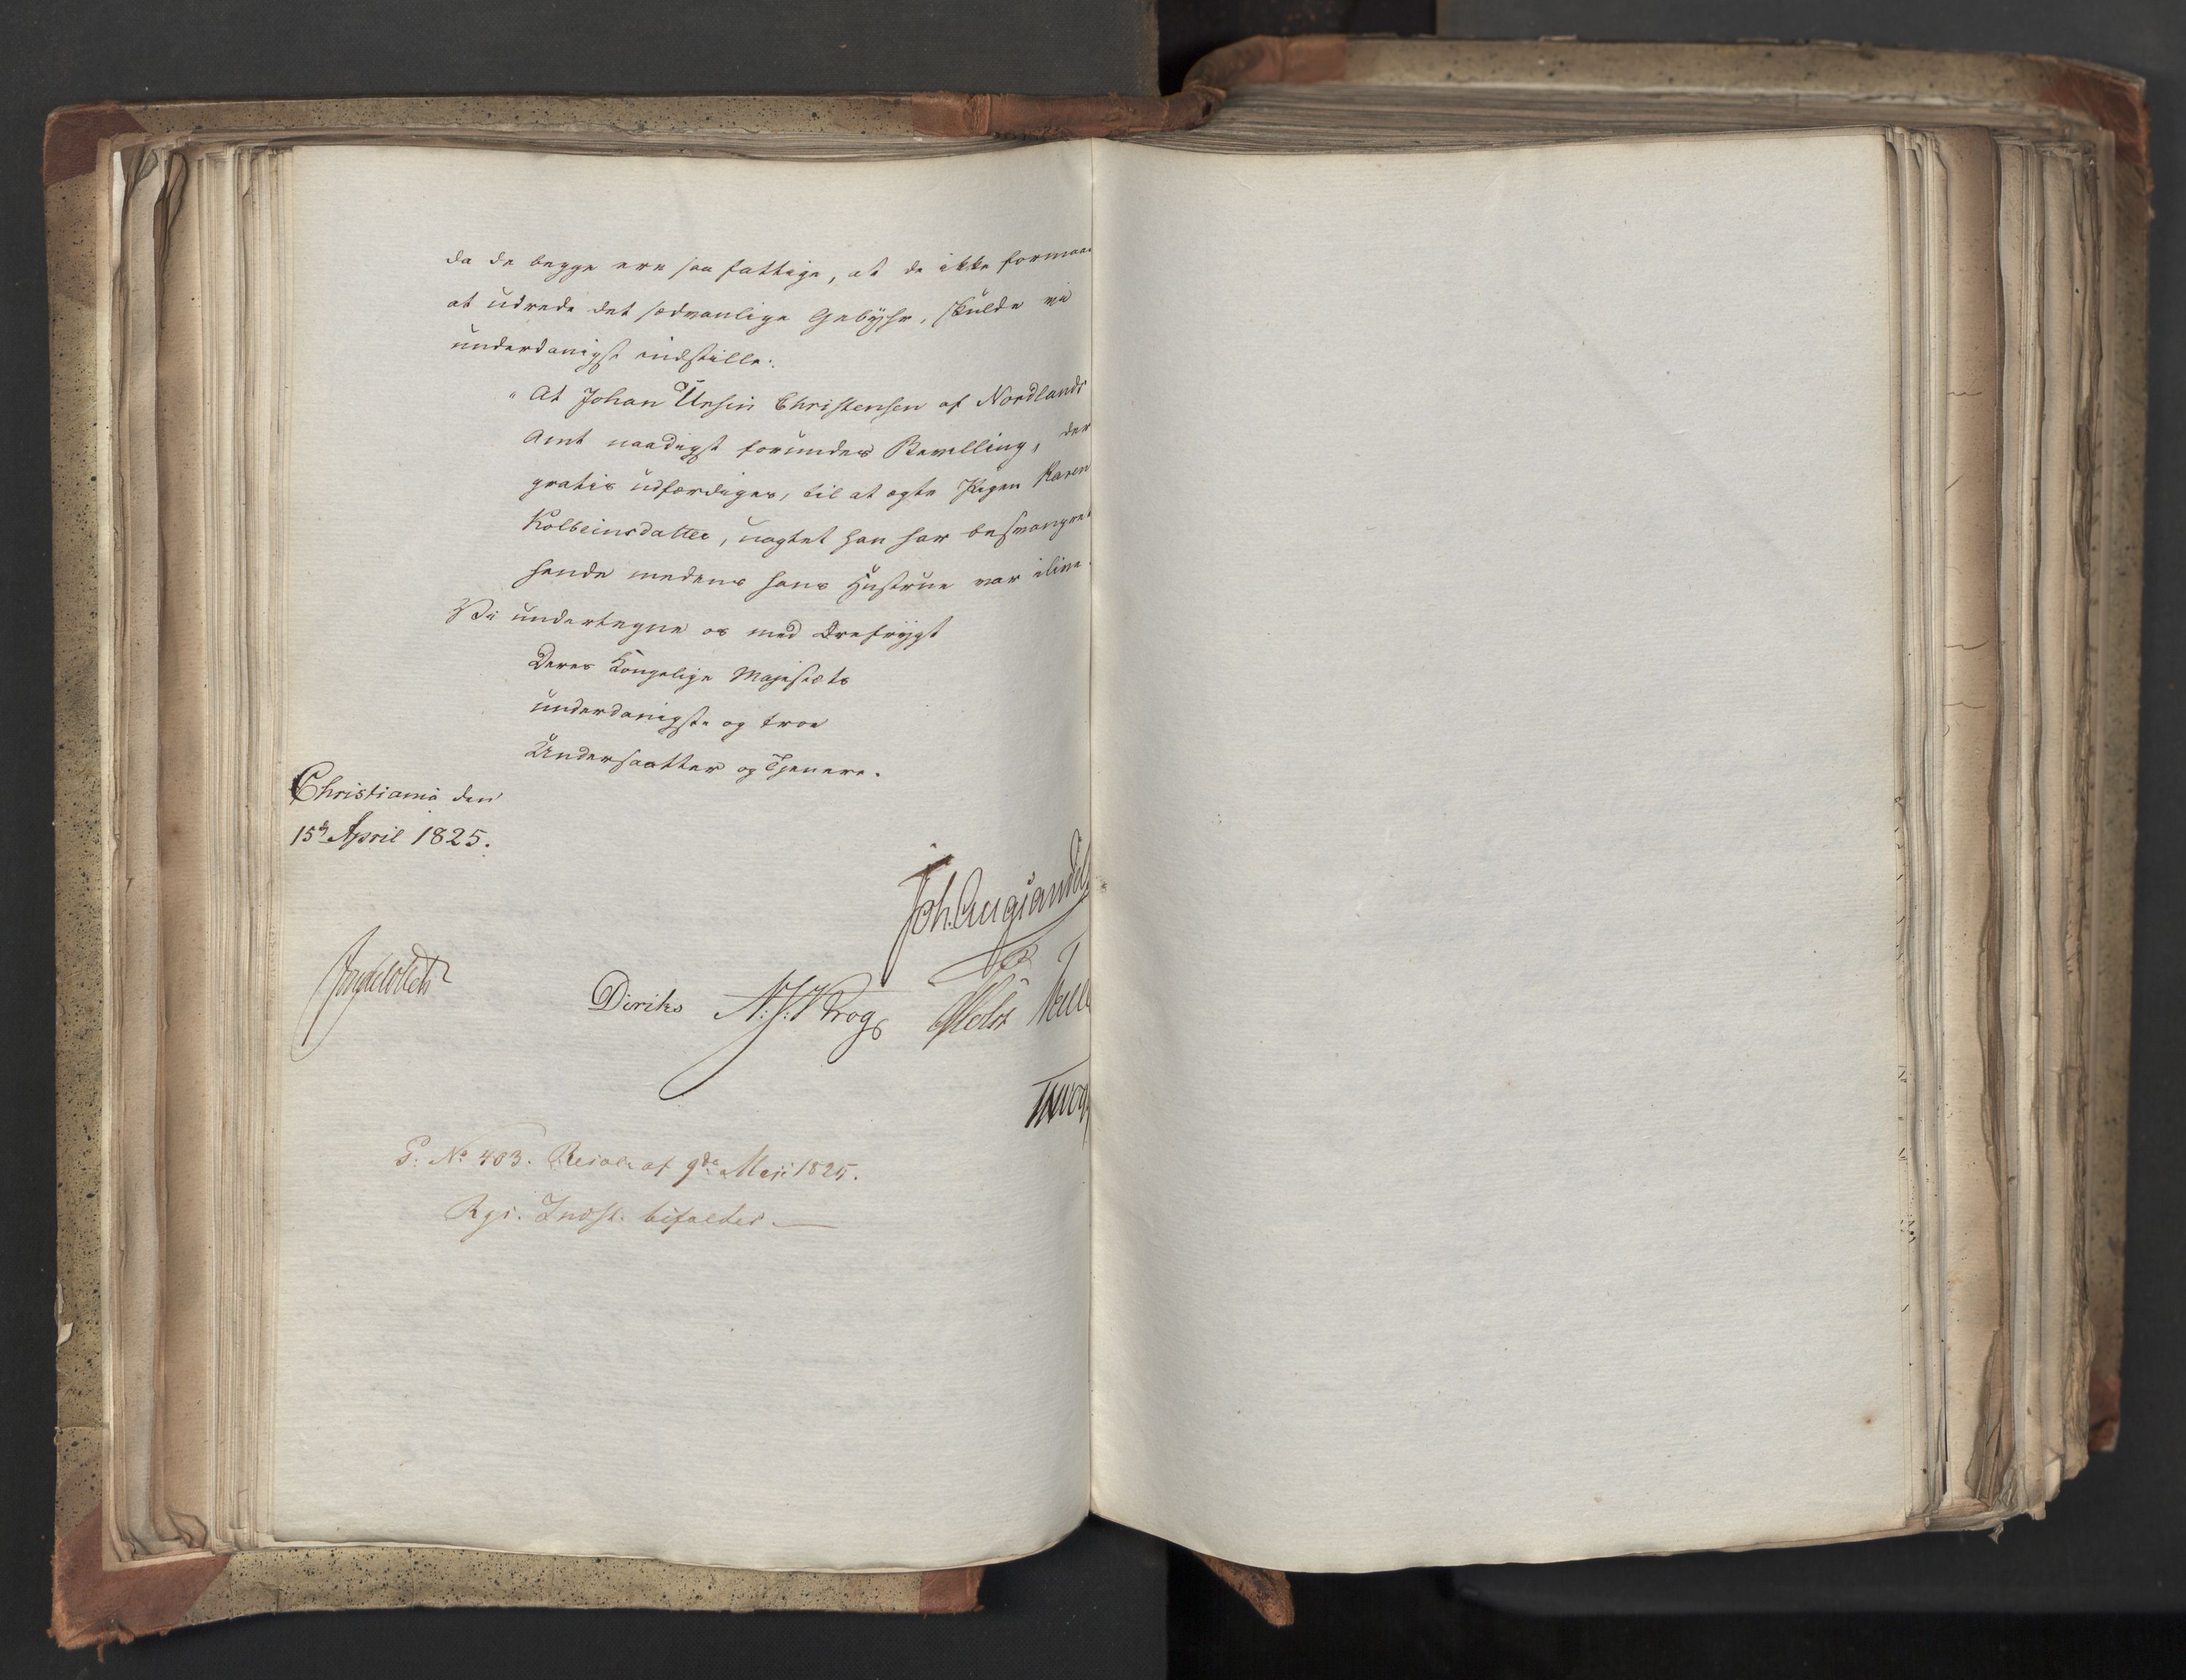 da de begge ere saa fattige, at de ikke formaae
at udrede det sædvanlige Gebyhr, skulde vi
underdanigst indstille:
"At Johan Ursin Christensen af Nordlands
Amt naadigst forundes Bevilling, der
gratis udfærdiges, til at ægte Pigen Karen
Kolbeinsdatter, uagtet han har besvangret
hende medens hans Hustrue var ilive.
Vi undertegne os med Ærefrygt
Deres Kongelige Majestæts
underdanigste og troe
Undersaatter og Tjenere.
Christiania den
15de April 1825.
Joh. Aug: Sandels
Diriks N. J. Krog Motz
P: No 403. Resol: af 9de Maji 1825.
Rgs. Indst: bifaldes.